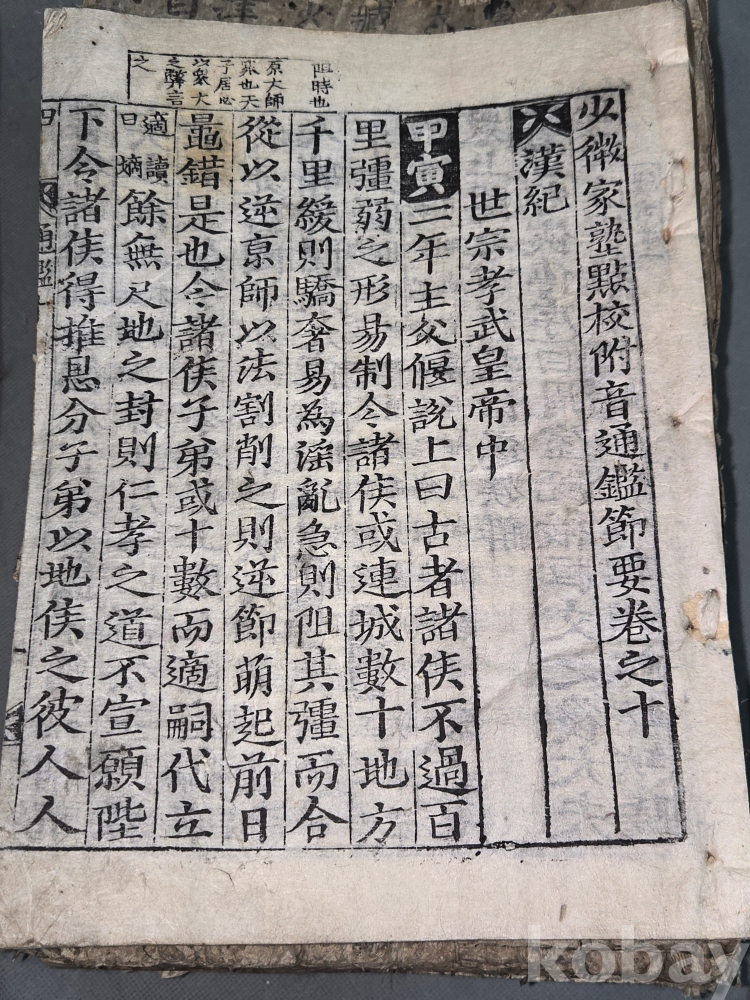 少微家塾點校附音通鑑節要卷之十
漢紀
世宗孝武皇帝中
甲寅三年主父偃說上曰古者諸侯不過百
里彊弱之形易制今諸侯或連城數十地方
千里緩則驕奢易為淫亂急則阻其彊而合
從以逆京師以法割削之則逆節萌起前日
鼂錯是也今諸侯子弟或十數而適嗣代立
適讀曰嫡餘無尺地之封則仁孝之道不宣願陛
下令諸侯得推恩分子弟以地侯之彼人人
阻時也
京大師
眾也天
子居必
以衆大
之辭言
之
通鑑
kobay